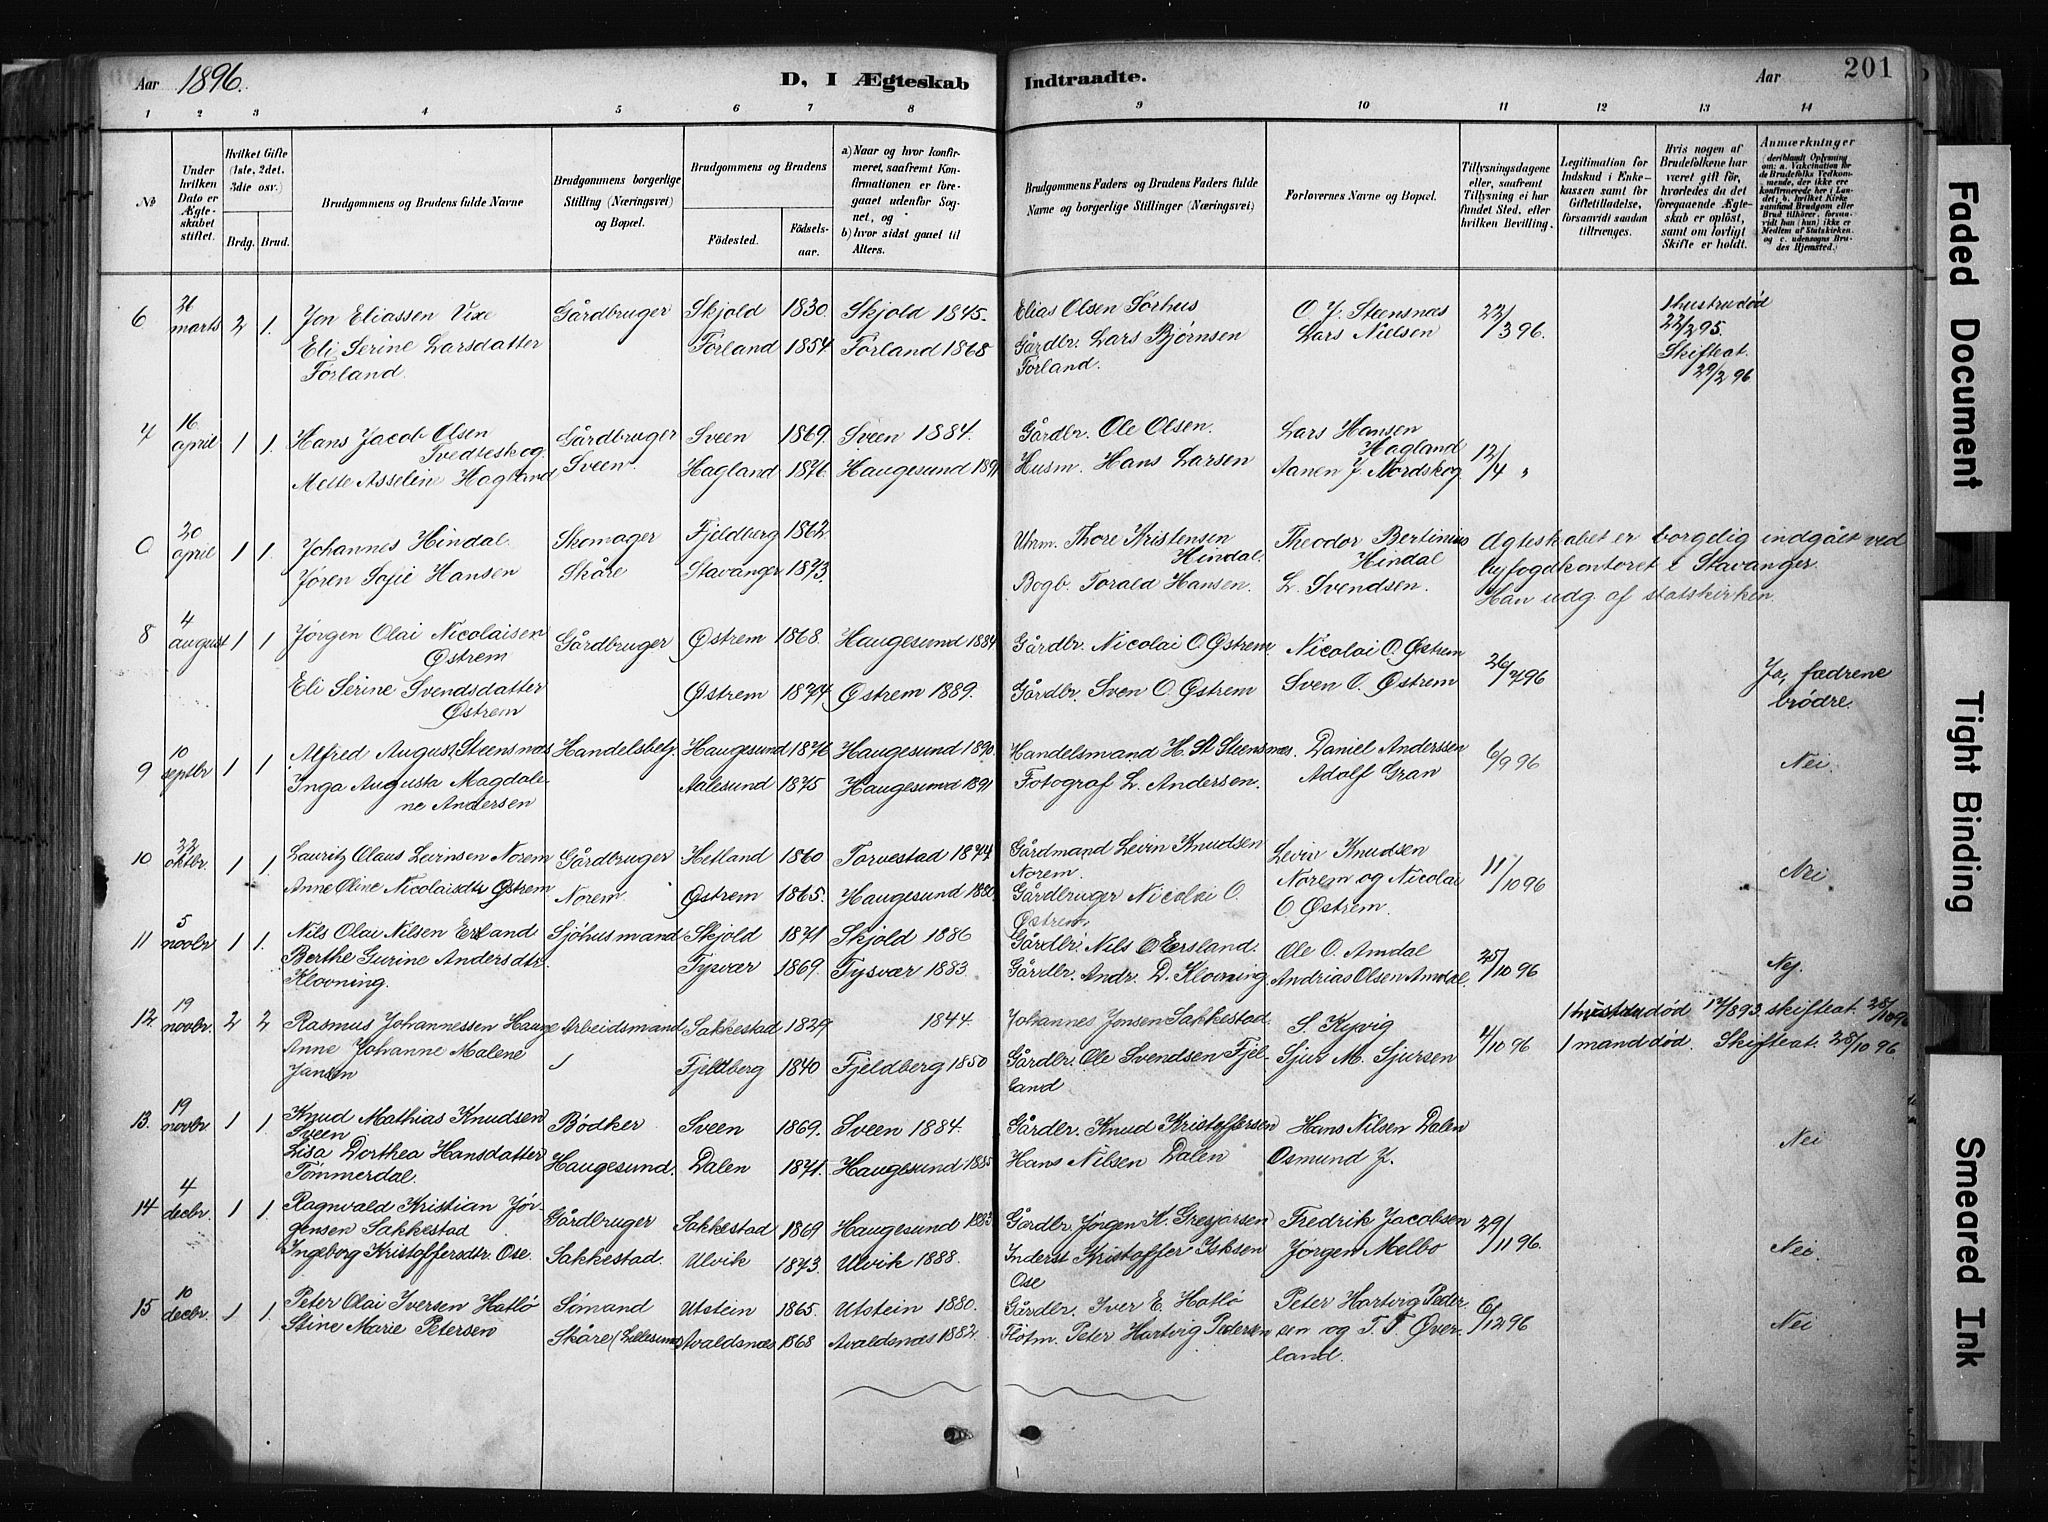 Aar 1896.
D, I Ægteskab Indtraadte.
Aar
201
1 2 3 4 5 6 7 8 9 10 11 12 13 14
No
Under hvilken Dato er Ægteskabet stiftet.
Hvilket Gifte (1ste, 2det, 3die osv.)
Brdg. Brud.
Brudgommens og Brudens fulde Navne
Brudgommens borgerlige Stilling (Næringsvei) og Bopæl.
Brudgommens og Brudens
Födested. Födselsaar.
a) Naar og hvor konfirmeret, saafremt Konfirmationen er foregaaet udenfor Sognet, og
b) hvor sidst gaaet til Alters.
Brudgommens Faders og Brudens Faders fulde Navne og borgerlige Stillinger (Næringsvei)
Forlovernes Navne og Bopæl.
Tillysningsdagene eller, saafremt Tillysning ei har fundet Sted, efter hvilken Bevilling.
Legitimation for Indskud i Enkekassen samt for Giftetilladelse, forsaavidt saadan tiltrænges.
Hvis nogen af Brudefolkene har været gift för, hvorledes da det foregaaende Ægteskab er oplöst, samt om lovligt Skifte er holdt.
Anmærkninger
(deriblandt Oplysning om: a. Vakcination för de Brudefolks Vedkommende, der ikke ere konfirmerede her i Landet; b. hvilket Kirkesamfund Brudgom eller Brud tilhörer, forsaavidt han (hun) ikke er Medlem af Statskirken, og c. udensogns Brudes Hjemsted.)
6 26 marts 2 1. Jon Eliassen Vixe Gårdbruger Skjold 1830. Skjold 1845. Elias Olsen Sørhus O. J. Steensnæs 22/3 96. 1 hustru død 22/2 95. Skifteat. 29/2 96
Eli Serine Larsdatter Førland. Førland 1854 Førland 1868 Gårdbr. Lars Bjørnsen Førland. Lars Nielsen
7 16 april 1 1. Hans Jacob Olsen Tvedteskog. Gårdbruger Sveen 1869. Sveen 1884. Gårdbr. Ole Olsen. Lars Hansen Hagland 12/4 "
Mette Asseline Hagland Sveen. Hagland 1876. Haugesund 1891 Husm. Hans Larsen Aanen J. Nordskog
20 april 1 1. Johannes Hindal. Skomager Fjeldberg 1862. Thore Kristensen Hindal. Theodor Bertinius Hindal Ægteskabet er borgelig indgået ved
Jøren Sofie Hansen Skåre Stavanger 1873. Bogb. Torald Hansen. L. Svendsen. byfogdkontoret i Stavanger.
Han udg. af statskirken.
8 4 august 1 1 Jørgen Olai Nicolaisen Østrem Gårdbruger Østrem 1868. Haugesund 1884 Gårdbr. Nicolai O. Østrem. Nicolai O. Østrem 26/7 96 Ja, fædrene brödre.
Eli Serine Svendsdatter Østrem Østrem 1874. Østrem 1889. Gårdbr. Sven O. Østrem Sven O. Østrem
9 10 septbr 1 1 Alfred August Steensnæs Handelsbetj. Haugesund 1876 Haugesund 1890. Handelsmand H. St. Steensnæs. Daniel Anderssen 6/9 96 Nei.
Inga Augusta Magdalene Andersen Aalesund 1875 Haugesund 1891 Fotograf L. Andersen. Adolf Gran
10 22 oktbr. 1 1. Lauritz Olaus Levinsen Norem Gårdbruger Hetland 1860 Torvestad 1874. Gårdmand Levin Knudsen Norem. Levin Knudsen 11/10 96 Nei
Anne Oline Nicolaisdtr Østrem Norem. Østrem 1865. Haugesund 1880. Gårdbruger Nicolai O. Østrem. Norem og Nicolai O. Østrem.
11 5 novbr 1 1. Nils Olai Nilsen Ersland Sjöhusmand Skjold 1871 Skjold 1886 Gårdbr. Nils Ersland. Ole O. Amdal 25/10 96 Nej.
Berthe Gurine Andersdtr. Klovning. Tysvær 1869. Tysvær 1883. Gårdbr. Andr. D. Klovning. Andrias Olsen Amdal.
12. 19 novbr. 2 2 Rasmus Johannessen Hauge Arbeidsmand Sakkestad 1829 1844. Johannes Jonsen Sakkestad. S. Kyvig 4/10 96 1 hustru død 17/8 93. skifteat. 28/10 96
Anne Johanne Malene Jansen Fjeldberg 1840 Fjeldberg 1850 Gårdbr. Ole Svendsen Fjelland Sjur M. Sjursen 1 mand død. Skifteat. 28/10 96
13. 19 novbr. 1 1. Knud Mathias Knudsen Sveen Bødker Sveen 1869. Sveen 1884. Gårdbr. Knud Kristoffersen Hans Nilsen Dalen Nei
Lisa Dorthea Hansdatter Tömmerdal. Haugesund. Dalen 1871. Haugesund 1885 Hans Nilsen Dalen Osmund J.
14 4 decbr. 1 1. Ragnvald Kristian Jörgensen Sakkestad Gårdbruger Sakkestad 1869 Haugesund 1883. Gårdbr. Jörgen K. Gresjarsen Fredrik Jacobsen 29/11 96. Nei.
Ingeborg Kristoffersdtr. Ose. Sakkestad. Ulvik 1873. Ulvik 1888. Inderst Kristoffer Isksen Ose Jörgen Melbo
15 10 decbr. 1 1. Peter Olai Iversen Hatlö Sömand Utstein 1865. Utstein 1880. Gårdbr. Iver E. Hatlö Peter Hartvig Peder- 6/12 96 Nei
Stine Marie Petersen Skåre (Lillesund) Avaldsnæs 1868 Avaldsnæs 1882. Flötm. Peter Hartvig Pedersen sen og T. T. Øverland.
Faded Document
Tight Binding
Smeared Ink